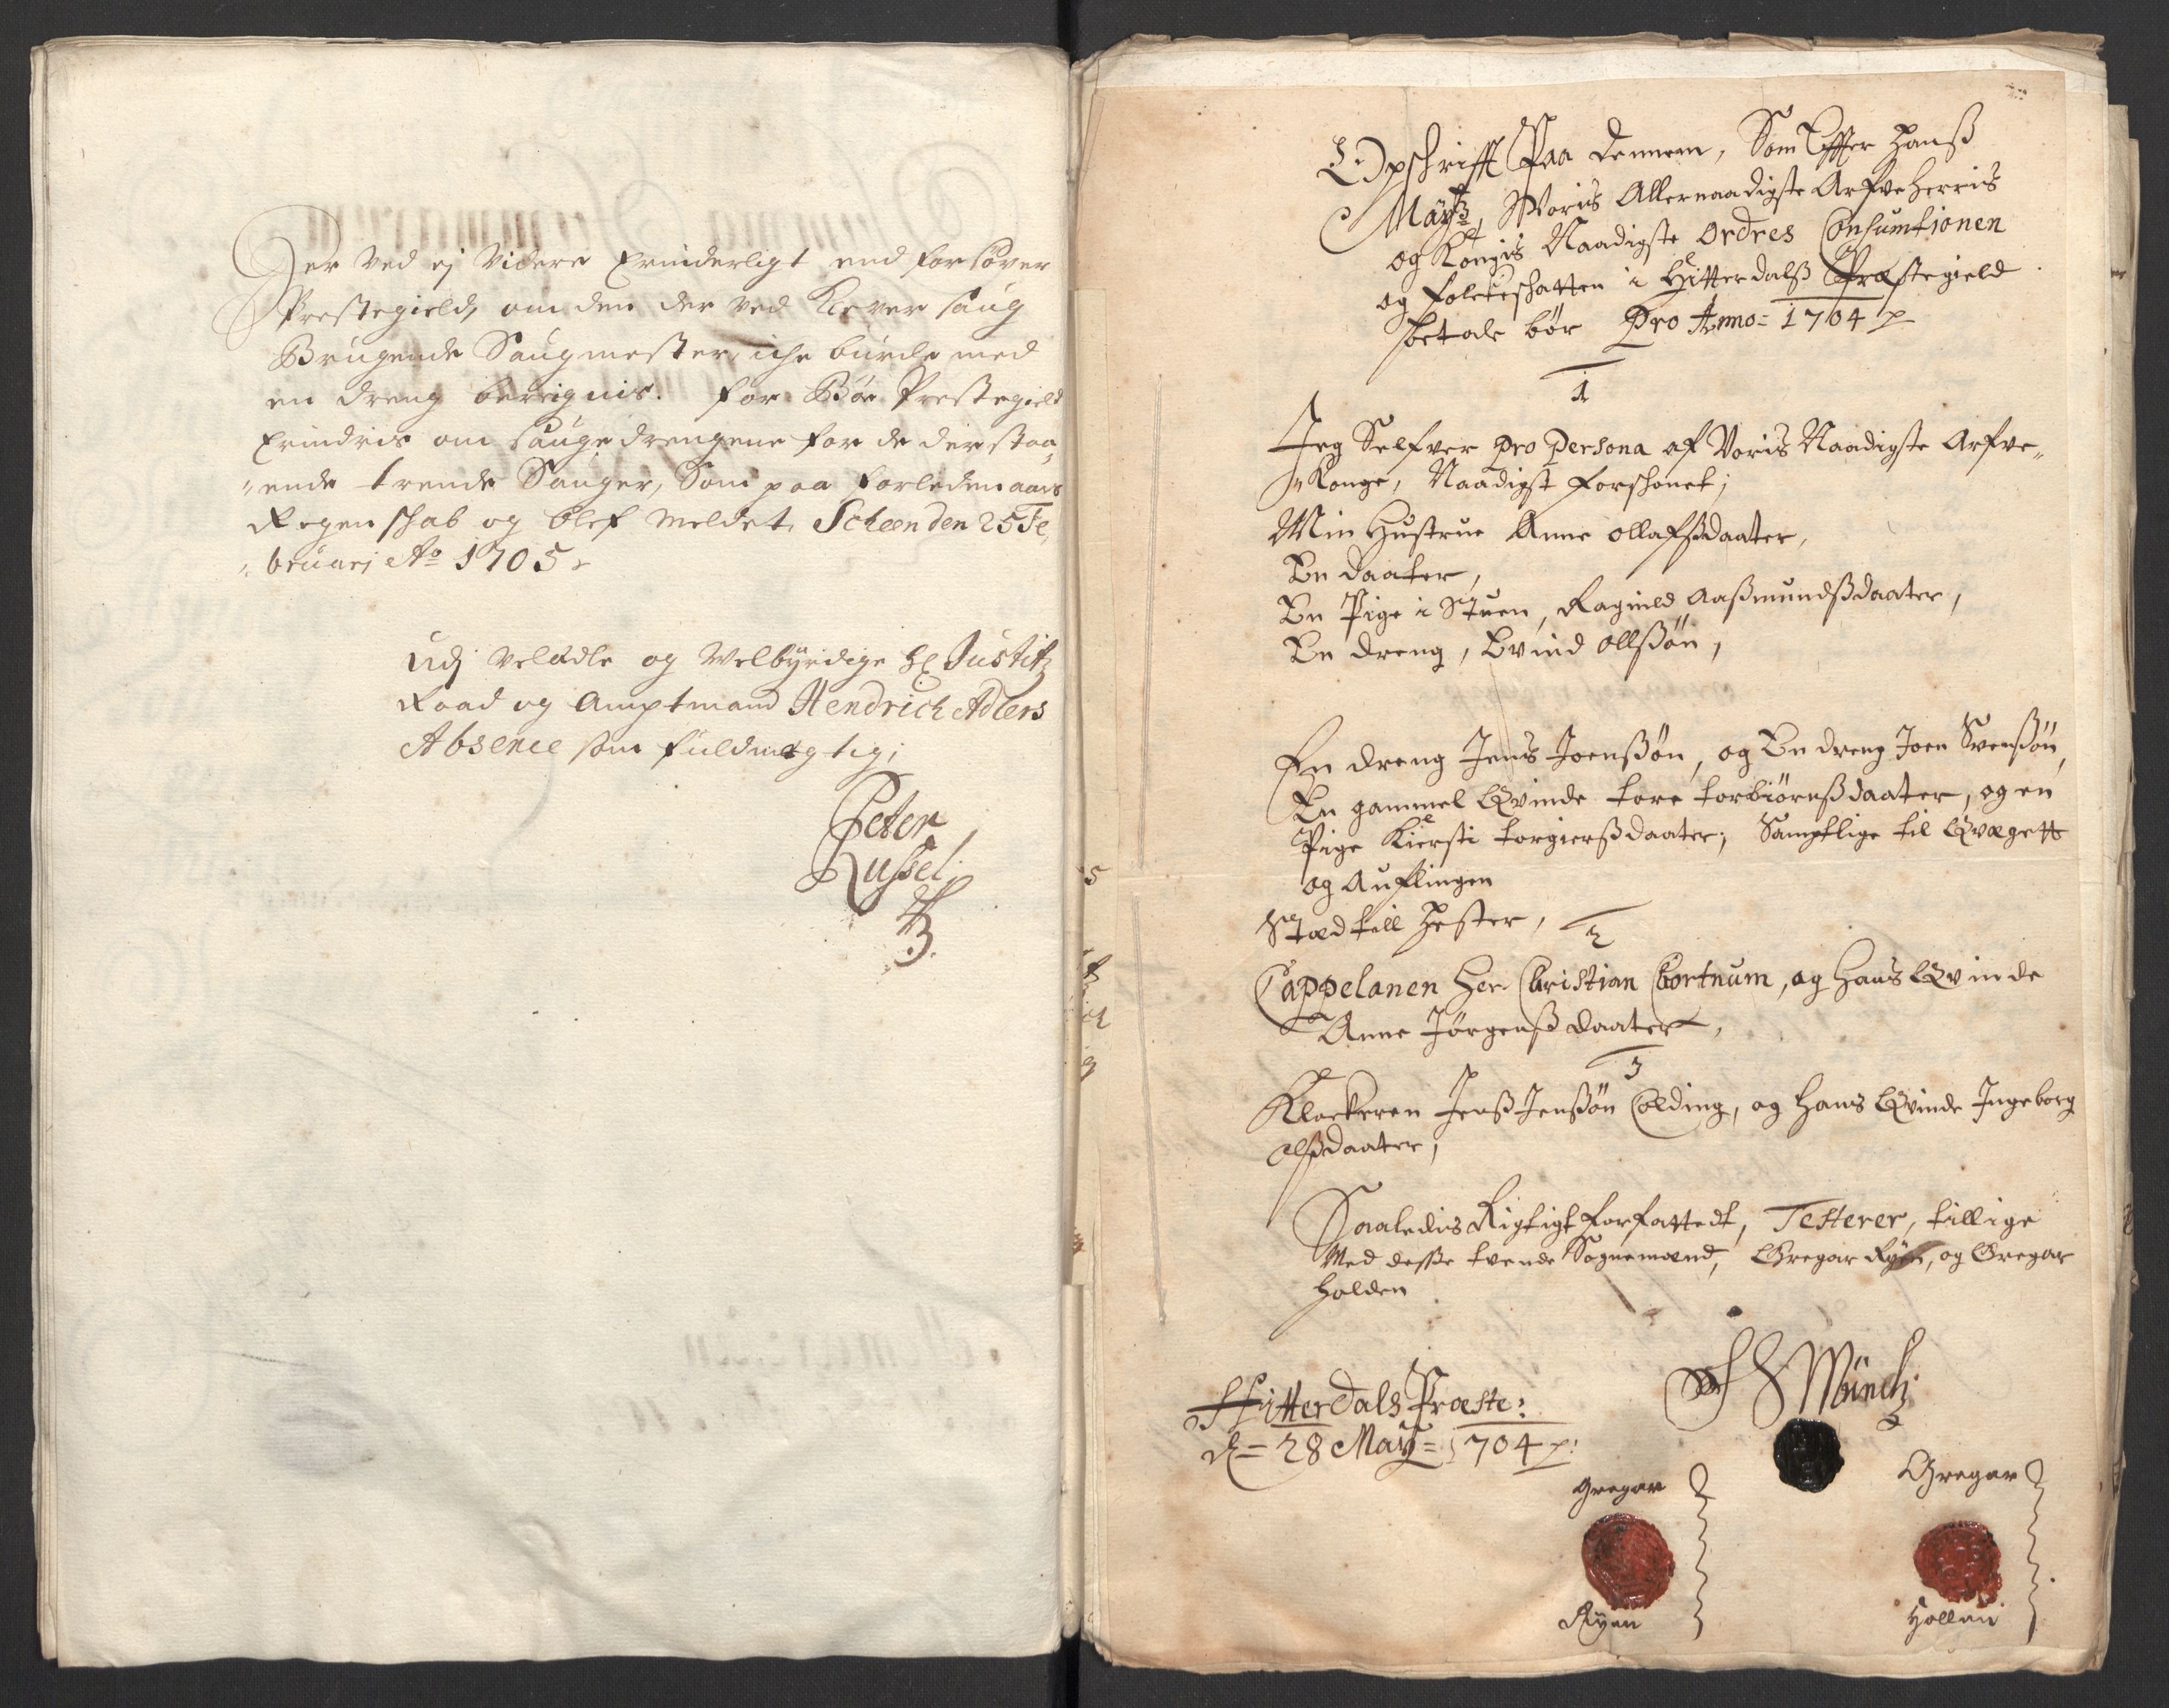 Her ved ej videre Erinderligt end for Søver
Prestegield, om den der ved Klever Saug
Brugende Saugmester, iche burde med
en dreng berignis. For Bøe Prestegield
Erindris om Sauge drengene for de der staa„
„ende trende Sauger, Som paa forleden aars
Regenschab og blef meldet. Scheen den 25 Fe„
„bruarj Ao 1705
Udj Velædle og Welbyrdige Hr Justitz
Raad og Amptmand Hendrich Adlers
Absence som fuldmegtig;
Peter
Russel
Opschrifft Paa dennem, Som Effter Hanß
Maytz, Woris Allernaadigste Arfve Herris
og Kongis Naadigste Ordres Consumtionen
og Folckeschatten i Hitterdalß Præstegield
betale bør Pro Anno= 1704
1
Jeg Selfver pro persona af Voris Naadigste Arfve„
„Konge, Naadigst forschonet;
Min Hustrue Anne Ollafsdaater,
En daater,
En Pige i Stuen, Ragnild Aaßmundßdaater,
En dreng, Evind Ollßøn,
En dreng Jens Joenßøn, og En dreng Joen Svenßøn,
En gammel Qvinde Tore Torbiørnßdaater, og en
Pige Kiersti Torgierßdaater; Samptlige til Qvægett
og Auflingen
Stæd till Hester,
2
Cappelanen Her Christian Cortnum, og Hans Qvinde
Anne Jørgenßdaater,
3
Klockeren Jenß Jenßøn Colding, og Hans Qvinde Ingeborg
Olßdaater,
Saaledis Rigtigt forfattedt, Testerer, tillige
Med desse tvende Sognemænd, Gregar Ryen, og Gregar
Holden
Hitterdals Præste:
d= 28 Maij= 1704
Münch
Gregar
Gregar
Ryen
Hollen